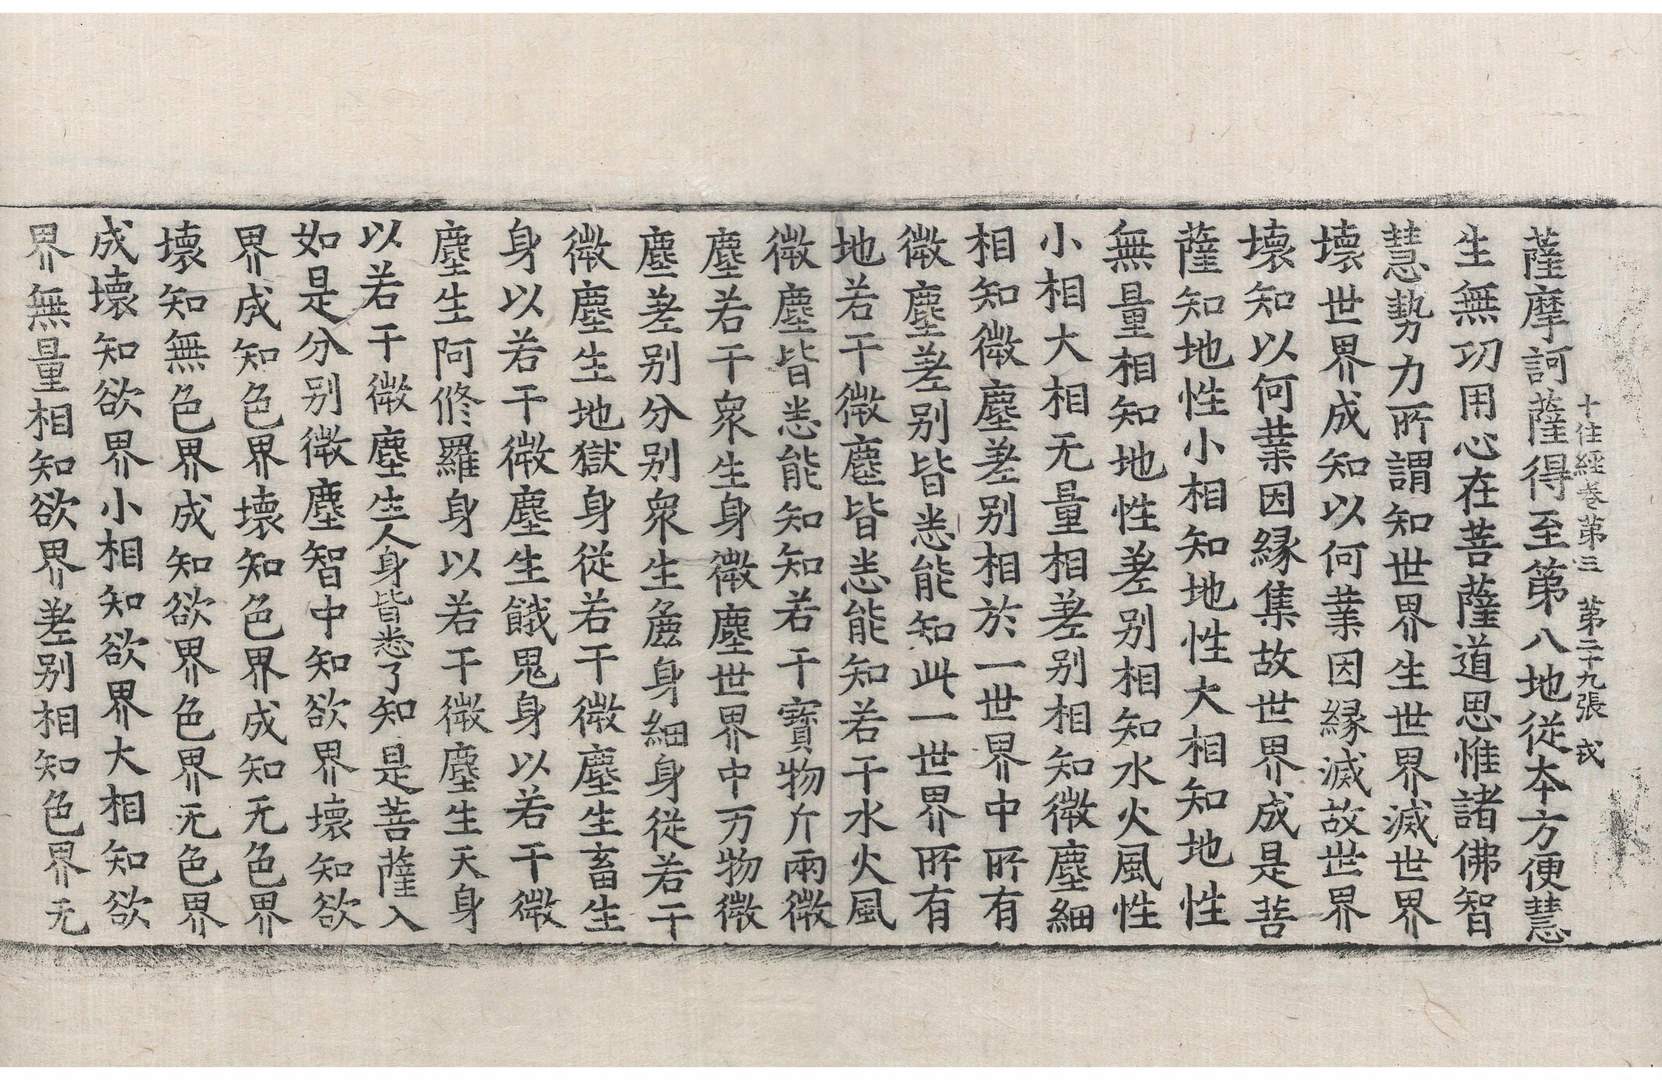 十住經卷第三　第二十九張　戎
薩摩訶薩得至第八地從本方便慧
生無功用心在菩薩道思惟諸佛智
慧勢力所謂知世界生世界滅世界
壞世界成知以何業因縁滅故世界
壞知以何業因縁集故世界成是菩
薩知地性小相知地性大相知地性
無量相知地性差別相知水火風性
小相大相无量相差別相知微塵細
相知微塵差別相於一世界中所有
微塵差別皆悉能知此一世界所有
地若干微塵皆悉能知若干水火風
微塵皆悉能知知若干寶物斤兩微
塵若干衆生身微塵世界中万物微
塵差別分別衆生麁身細身從若干
微塵生地獄身從若干微塵生畜生
身以若干微塵生餓鬼身以若干微
塵生阿修羅身以若干微塵生天身
以若干微塵生人身皆悉了知是菩薩入
如是分別微塵智中知欲界壞知欲
界成知色界壞知色界成知无色界
壞知無色界成知欲界色界无色界
成壞知欲界小相知欲界大相知欲
界無量相知欲界差別相知色界无